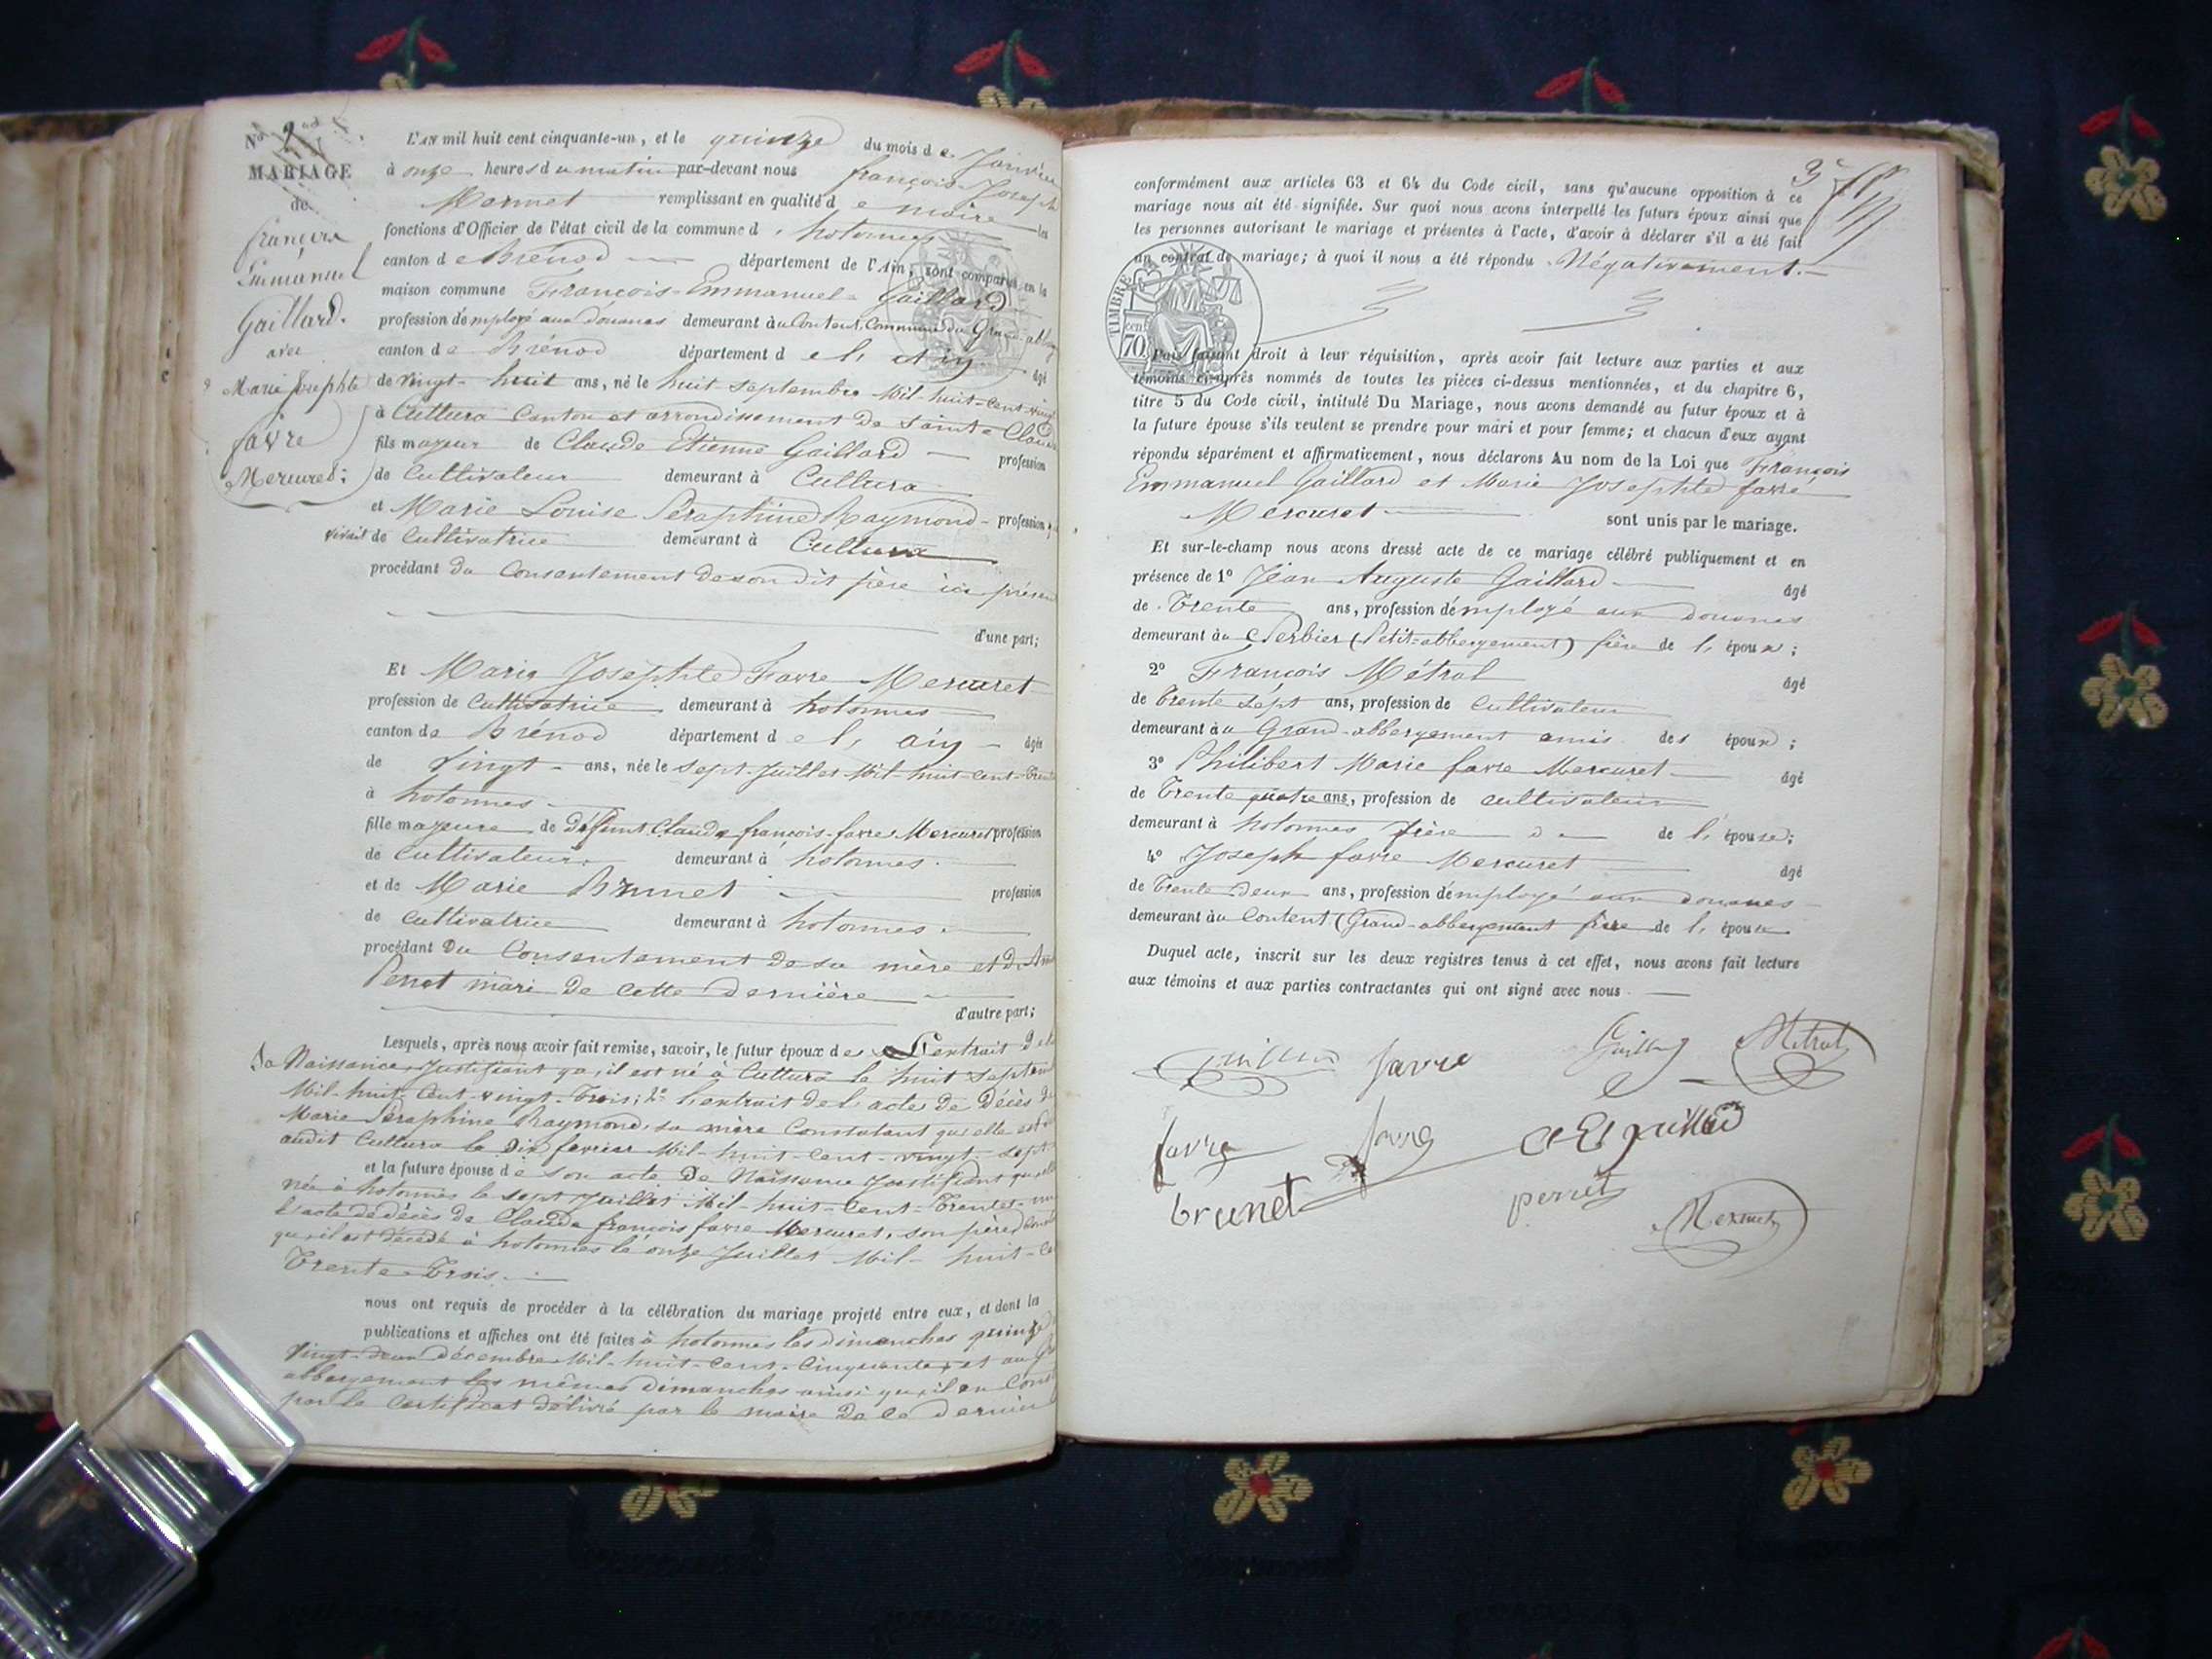 No 2
MARIAGE
de
françois
Emmanuel
Gaillard.
avec
Marie Josephte
favre
Mercuret;
L'AN mil huit cent cinquante-un, et le quinze du mois de Janvier
à onze heures du matin par-devant nous françois-Joseph
Mermet remplissant en qualité de maire les
fonctions d'Officier de l'état civil de la commune d'hotonnes
canton de Brénod département de l'Ain, sont comparus en la
maison commune François-Emmanuel Gaillard
profession d'employé aux douanes demeurant au Content, Commune du Grand-abb
canton de Brénod département de l'Ain âgé
de vingt-huit ans, né le huit septembre Mil-huit-cent-vingt
à Cultura Canton et arrondissement de Saint-Claude
fils majeur de Claude Etienne Gaillard profession
de Cultivateur demeurant à Cultura
et Marie Louise Séraphine Raymond profession
vivait de Cultivatrice demeurant à Cultura
procédant du Consentement de son dit père ici présent
d'une part;
Et Marie Josephte Favre Mercuret
profession de Cultivatrice demeurant à hotonnes
canton de Brénod département de l'ain âgée
de Vingt ans, née le sept Juillet Mil-huit-cent-Trente
à hotonnes
fille majeure de défunt Claude françois favre Mercuret profession
de Cultivateur demeurant à hotonnes
et de Marie Brunet profession
de cultivatrice demeurant à hotonnes
procédant du Consentement de sa mère et d
Perret mari de cette dernière
d'autre part;
Lesquels, après nous avoir fait remise, savoir, le futur époux de L'extrait de
Sa Naissance Justifiant qu'il est né à Cultura le huit Septem
Mil-huit-Cent-vingt-Trois; 2º l'extrait de l'acte de Décès de
Marie Séraphine Raymond, sa mère Constatant qu'elle est
audit Cultura le Dix fevrier Mil-huit-Cent-vingt-sept
et la future épouse de son acte de Naissance Justifiant qu'elle
née à hotonnes le sept Juillet Mil-huit-Cent-Trente
L'acte de décès de Claude françois favre Mercuret, son père
qu'il est décédé à hotonnes le onze Juillet Mil-huit-Ce
Trente-Trois.
nous ont requis de procéder à la célébration du mariage projeté entre eux, et dont les
publications et affiches ont été faites à hotonnes les dimanches quinze
Vingt-deux décembre Mil-huit-Cent-Cinquante, et au Gr
abbergement les mêmes Dimanches ainsi qu'il en Cons
par le Certificat délivré par le maire de ce dernier
3e
conformément aux articles 63 et 64 du Code civil, sans qu'aucune opposition à ce
mariage nous ait été signifiée. Sur quoi nous avons interpellé les futurs époux ainsi que
les personnes autorisant le mariage et présentes à l'acte, d'avoir à déclarer s'il a été fait
un contrat de mariage; à quoi il nous a été répondu Négativement.
TIMBRE
70 cent
Puis faisant droit à leur réquisition, après avoir fait lecture aux parties et aux
témoins ci-après nommés de toutes les pièces ci-dessus mentionnées, et du chapitre 6,
titre 5 du Code civil, intitulé Du Mariage, nous avons demandé au futur époux et à
la future épouse s'ils veulent se prendre pour mari et pour femme; et chacun d'eux ayant
répondu séparément et affirmativement, nous déclarons Au nom de la Loi que François
Emmanuel Gaillard et Marie Josephte favre
Mercuret sont unis par le mariage.
Et sur-le-champ nous avons dressé acte de ce mariage célébré publiquement et en
présence de 1º Jean Auguste Gaillard âgé
de Trente ans, profession d'employé aux douanes
demeurant au Perbier (Petit-abbergement) frère de l'époux;
2º François Métral âgé
de trente sept ans, profession de Cultivateur
demeurant au Grand-abbergement amis des époux;
3º Philibert Marie favre Mercuret âgé
de Trente quatre ans, profession de cultivateur
demeurant à hotonnes frère de l'épouse;
4º Joseph favre Mercuret âgé
de Trente Deux ans, profession d'employé aux douanes
demeurant au Content (Grand-abbergement frère de l'épouse
Duquel acte, inscrit sur les deux registres tenus à cet effet, nous avons fait lecture
aux témoins et aux parties contractantes qui ont signé avec nous
favre Métral
favre favre C E gaillard
brunet perret
Mermet